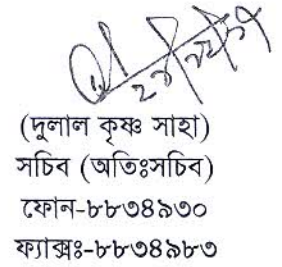 (দুলাল কৃষ্ণ সাহা)
সচিব (অতিঃসচিব)
ফোন-৮৮৩৪৯৩০
ফ্যাক্সঃ-৮৮৩৪৯৮৩